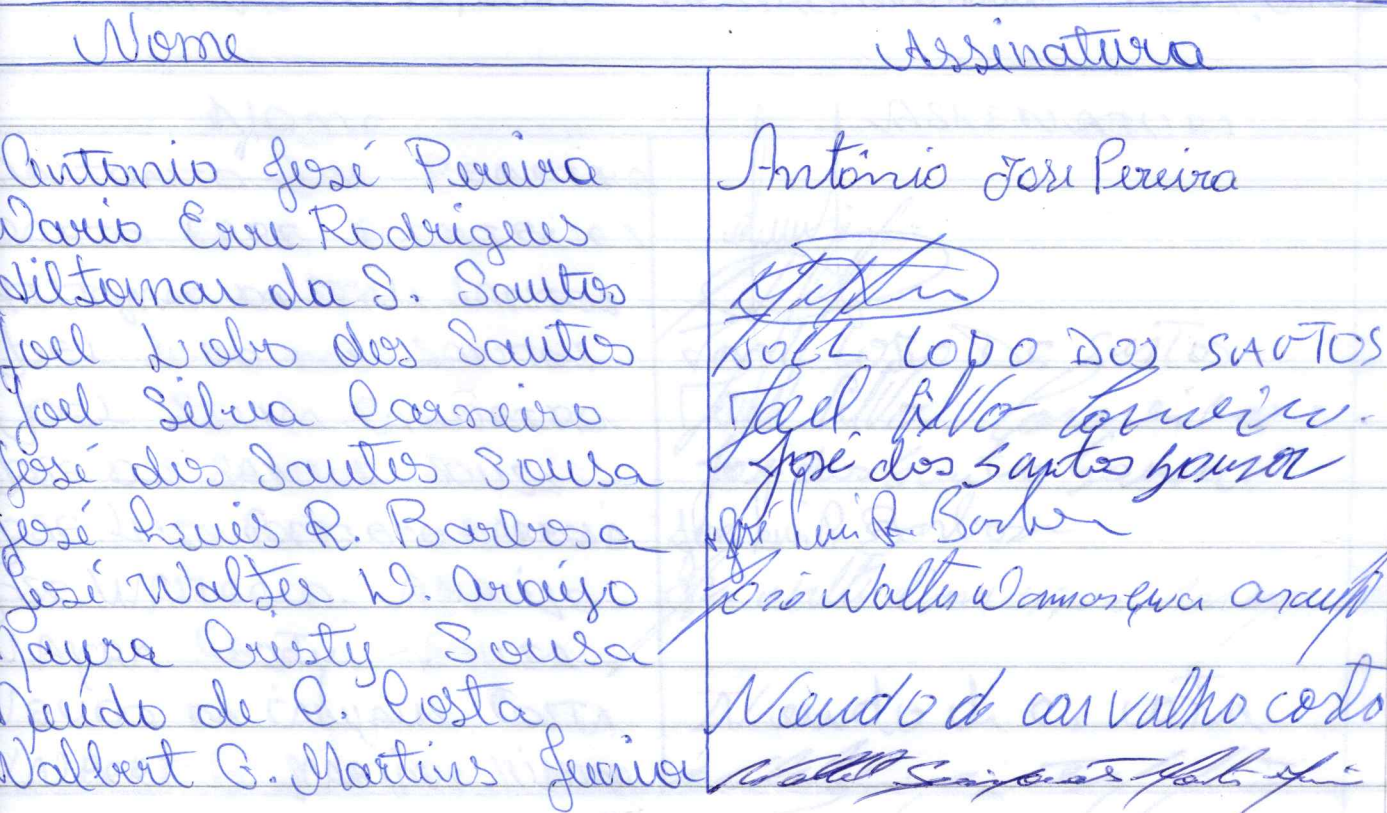 Nome Assinatura
Antonio José Pereira António José Pereira
Dario Erre Rodrigeus
da S. Santos
Joel Lobo dos Santos JOEL LOBO DOS SANTOS
Joel Silva Carneiro Joel Silva Carneiro.
José dos Santos Sousa José dos Santos Sousa
José Luis R. Barbosa José Luis R. Barbosa
José Walter D. Araújo José Walter Damasceno Araujo
Cristy Sousa
Neudo de C. Costa Neudo de carvalho costa
Walbert G. Martins Junior